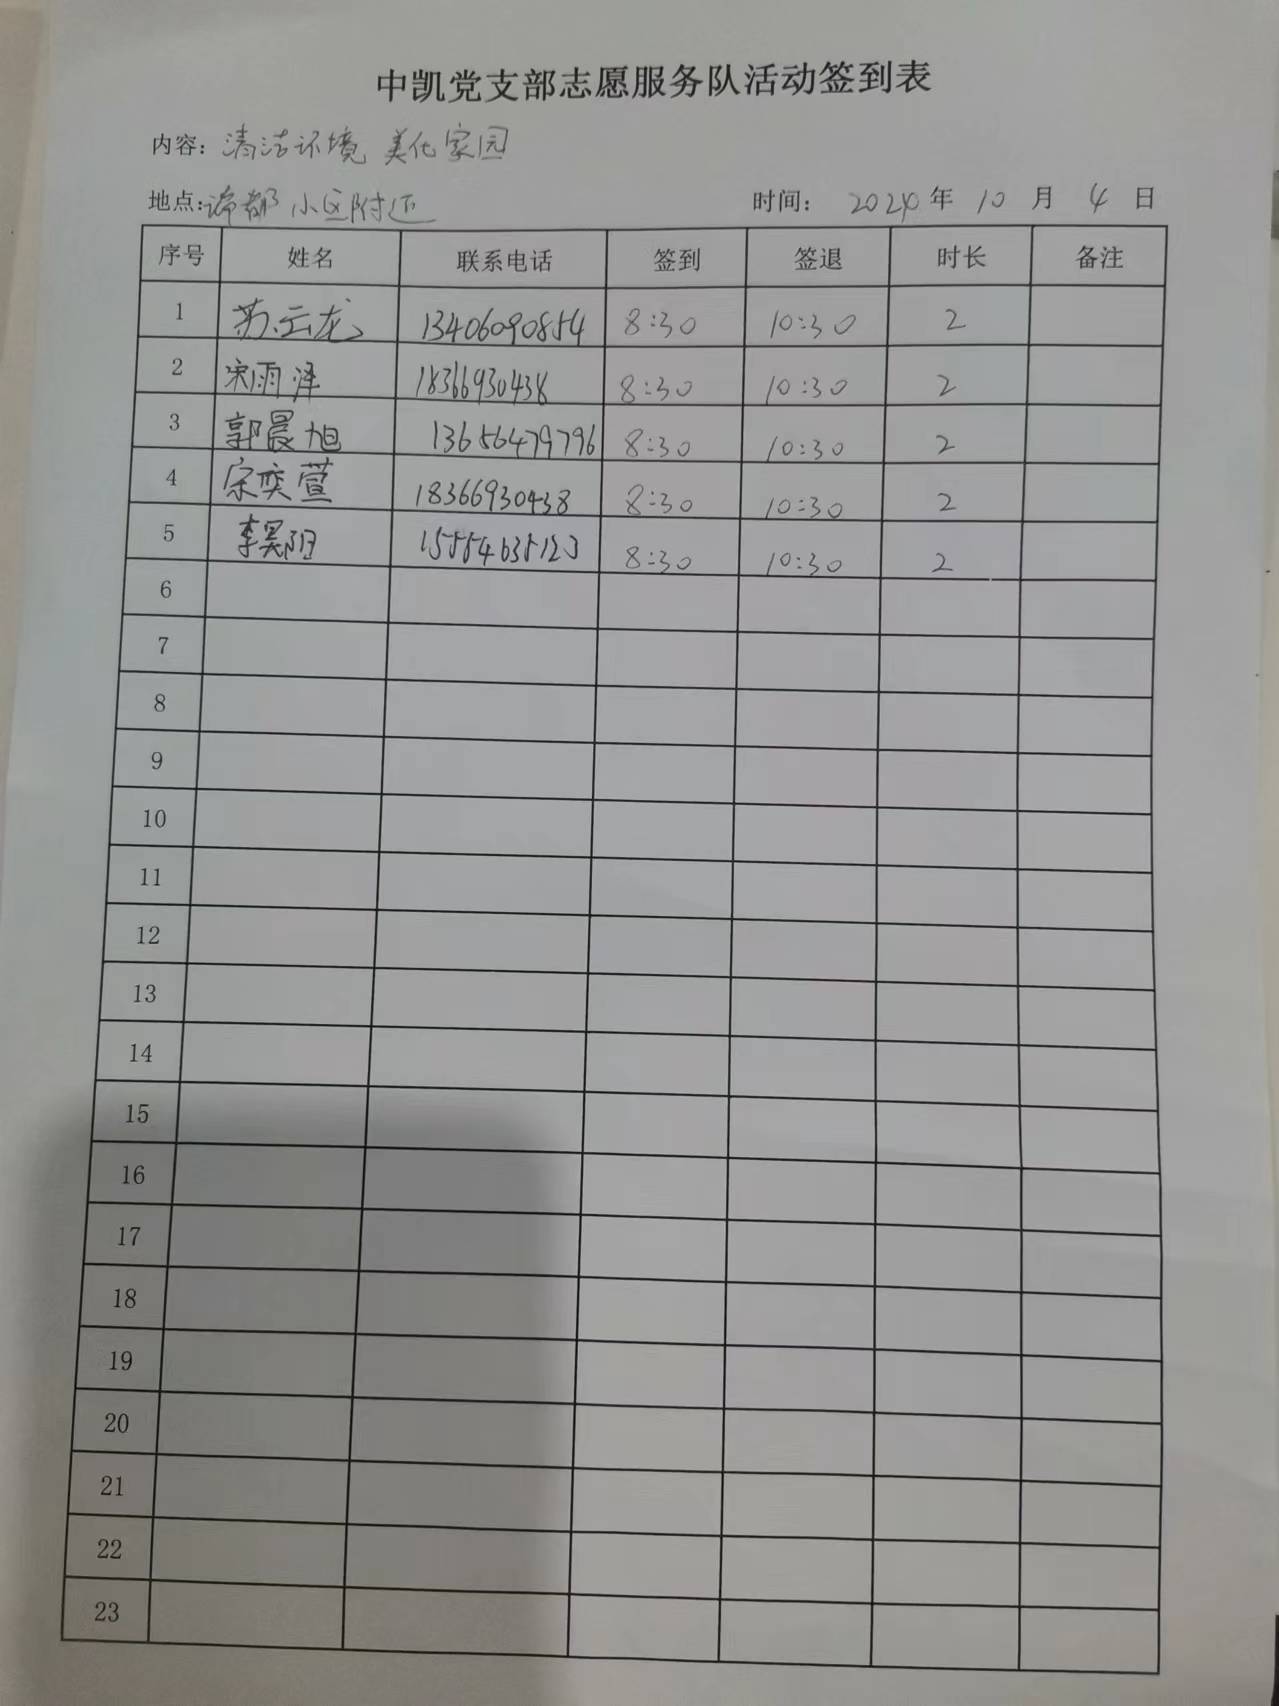 中凯党支部志愿服务队活动签到表
内容：清洁环境 美化家园
地点：都 小区附近 时间： 2024 年 10 月 4 日
序号 姓名 联系电话 签到 签退 时长 备注
1 苏云龙 13406090854 8:30 10:30 2
2 宋雨泽 18366930438 8:30 10:30 2
3 郭晨旭 13656479796 8:30 10:30 2
4 宋奕萱 18366930438 8:30 10:30 2
5 李昊阳 15554635123 8:30 10:30 2
6
7
8
9
10
11
12
13
14
15
16
17
18
19
20
21
22
23